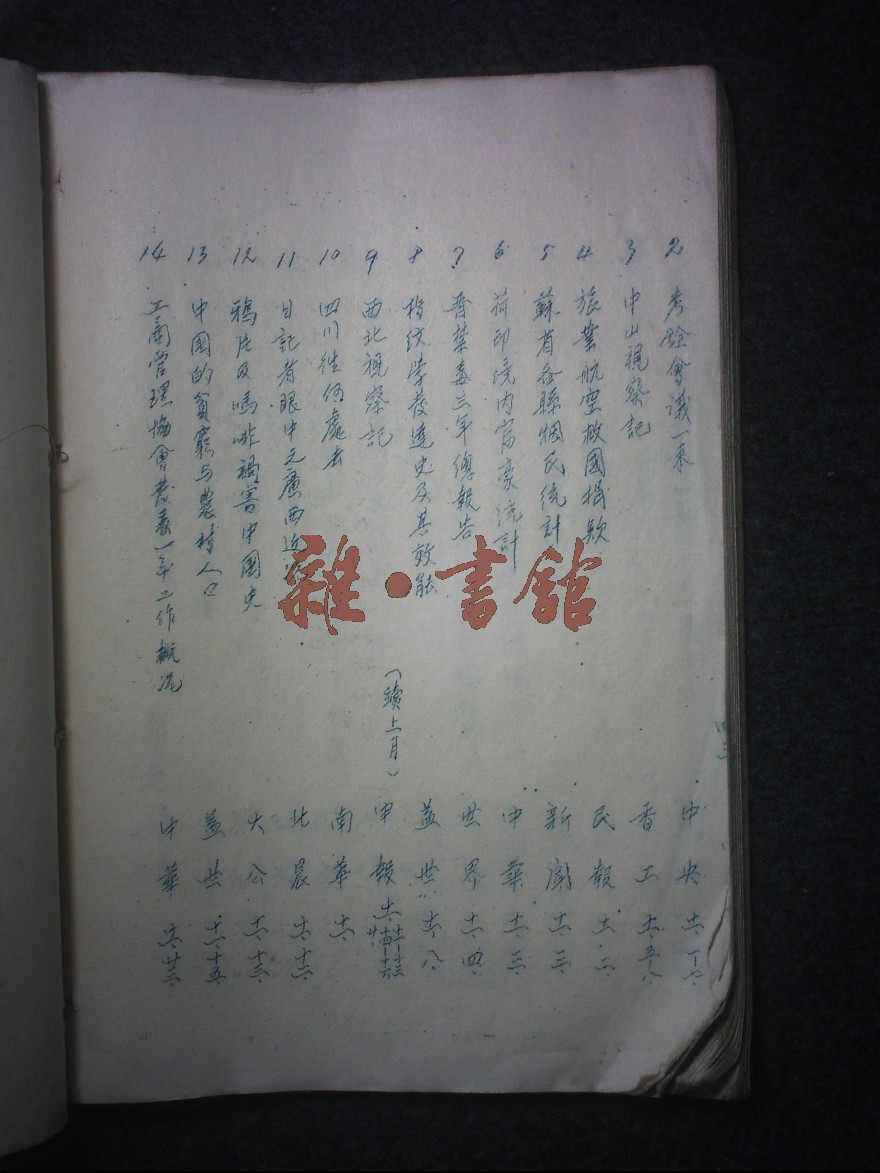 2 考驗會議一束 中央 十一、一—七、
3 中山視察記 香工 十一、五、八、
4 旅業航空救國捐款 民報 十一、二、
5 蘇省各縣烟民統計 新聞 十一、三、
6 荷印境內富豪統計 中華 十一、三、
7 晉禁毒三年總報告 世界 十一、四、
8 指紋學發達史及其效能 益世 十一、八、
9 西北視察記 (續上月) 申報
10 四川往何處去 南華 十一、
11 日記者眼中之廣西近 北晨
12 鴉片及嗎啡禍害中國史 大公 十一、十三、
13 中國的貧窮与農村人口 益世 十一、十五、
14 工商管理協會最近一年工作概況 中華 十一、廿三、
雜·書館